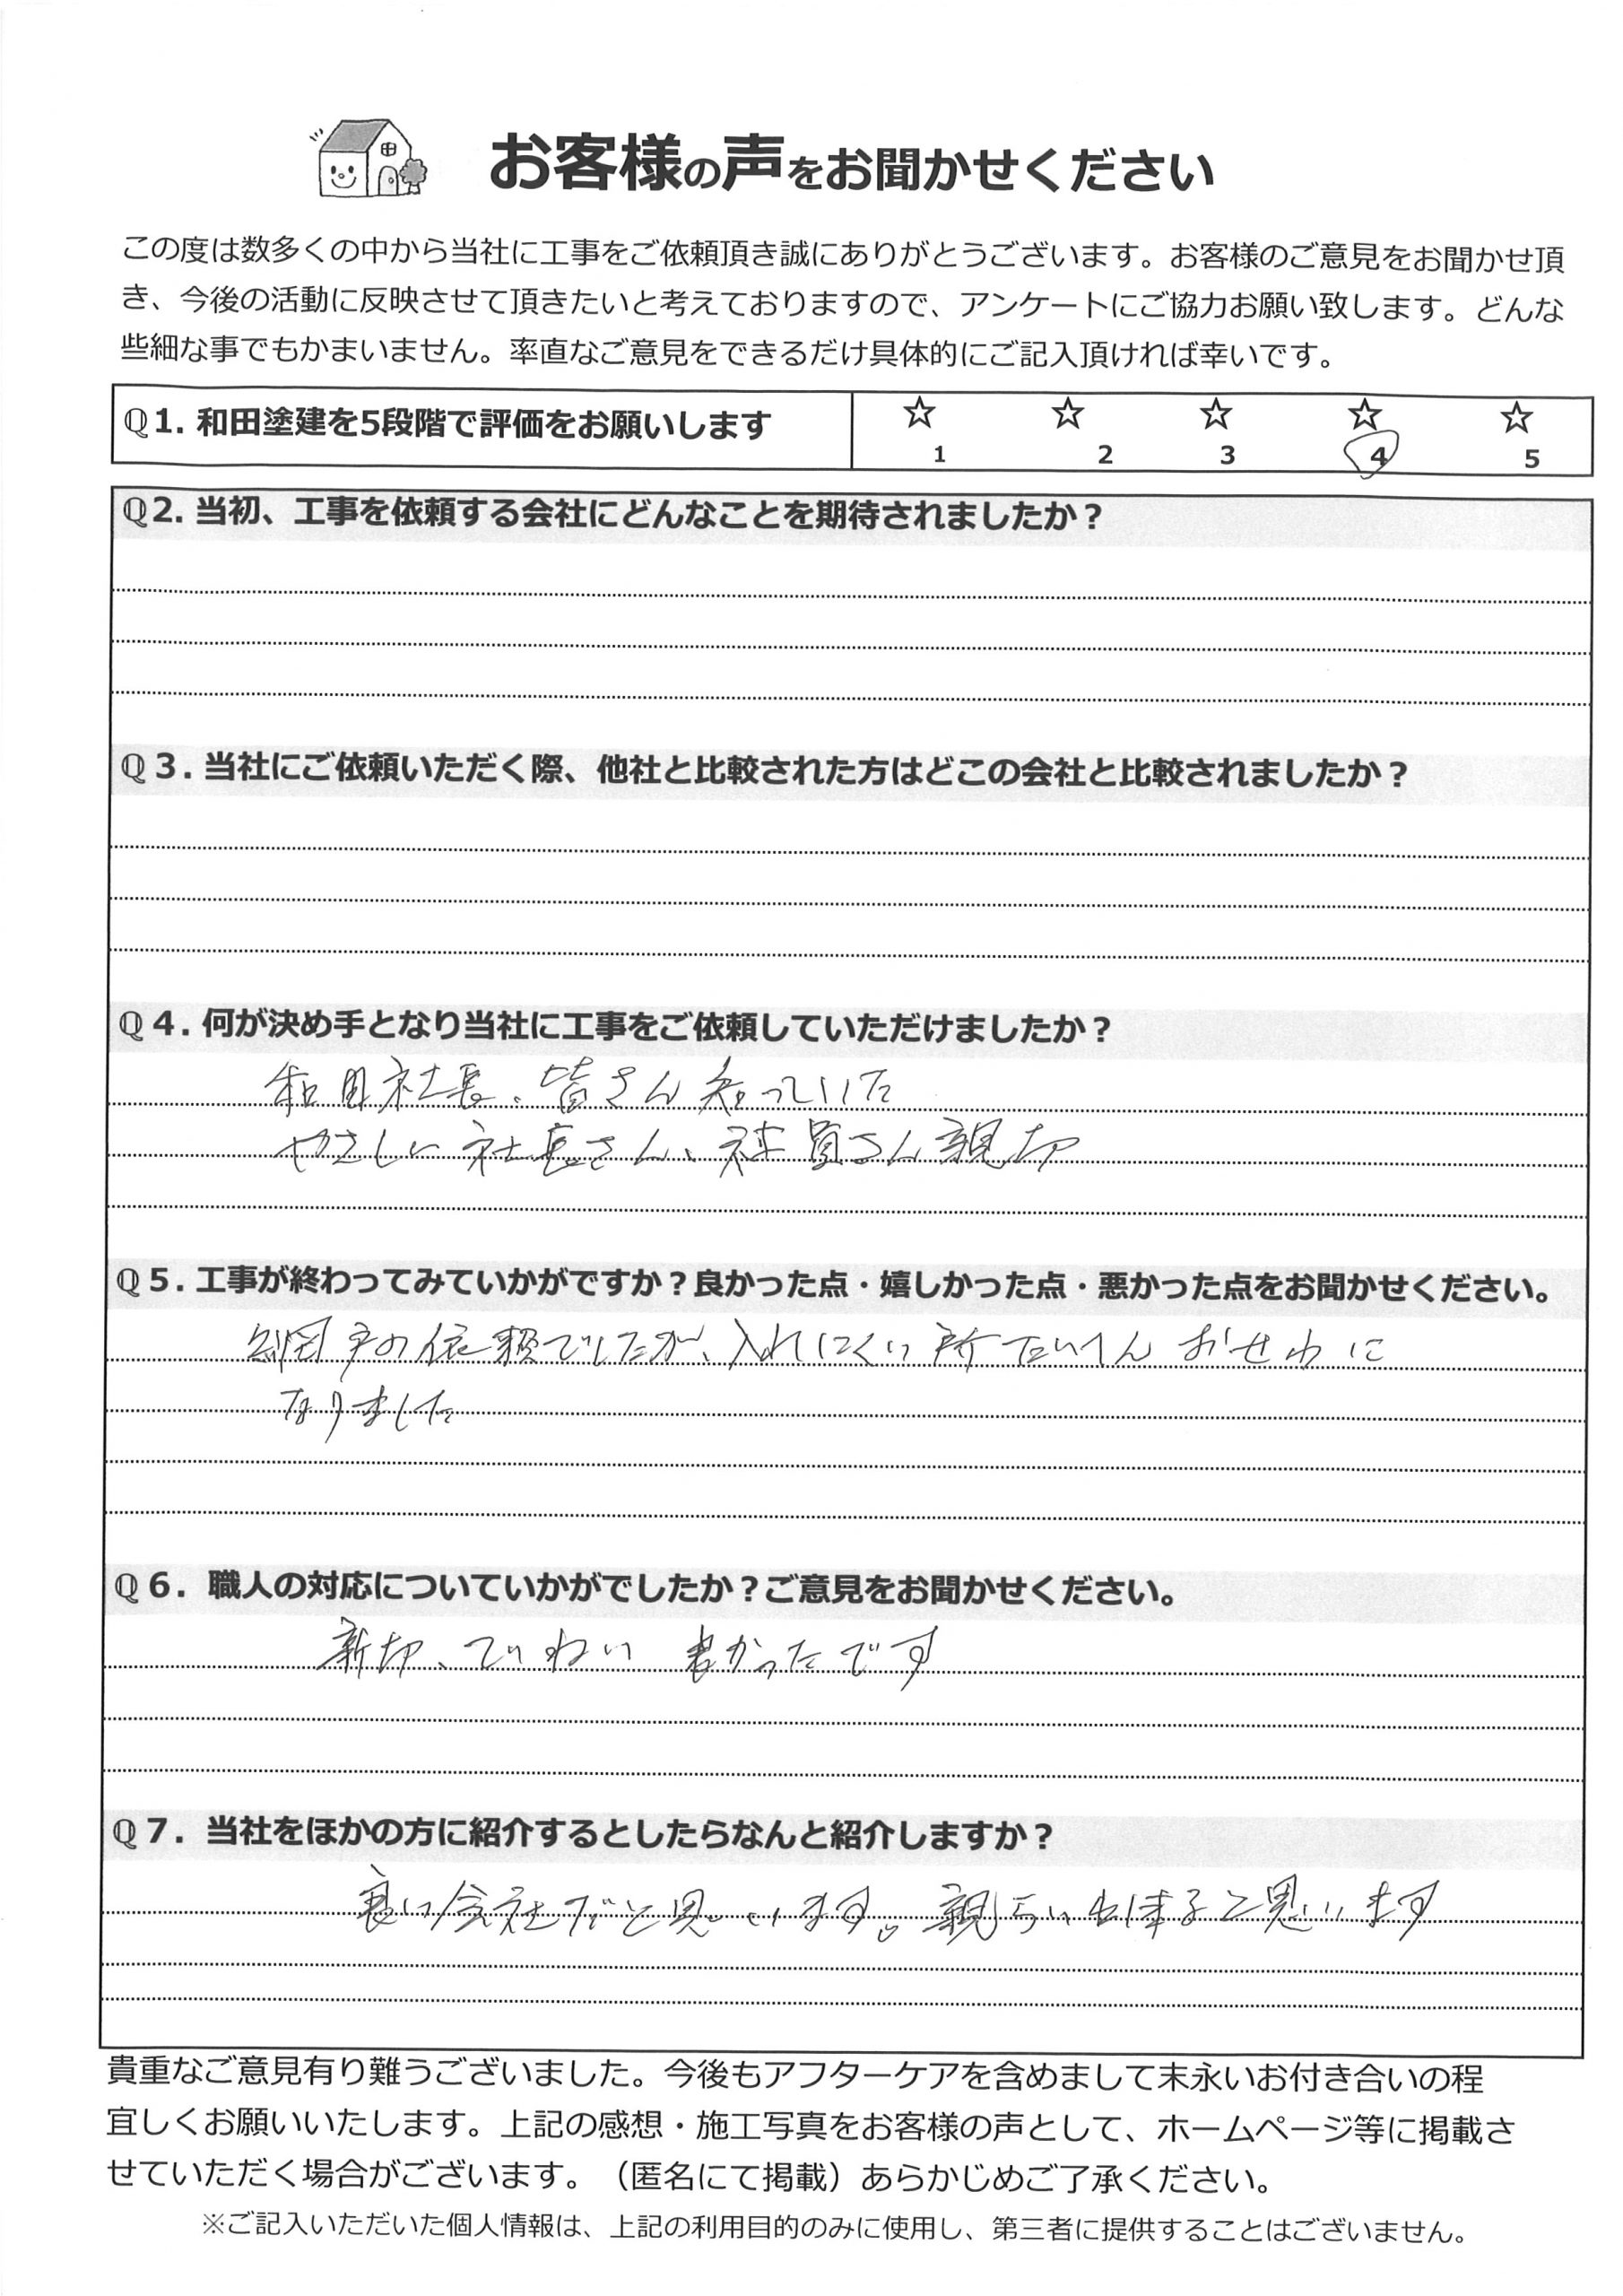 お客様の声をお聞かせください
この度は数多くの中から当社に工事をご依頼頂き誠にありがとうございます。お客様のご意見をお聞かせ頂
き、今後の活動に反映させて頂きたいと考えておりますので、アンケートにご協力お願い致します。どんな
些細な事でもかまいません。率直なご意見をできるだけ具体的にご記入頂ければ幸いです。
Q1. 和田塗建を5段階で評価をお願いします ☆ ☆ ☆ ☆ ☆
1 2 3 4 5
Q2. 当初、工事を依頼する会社にどんなことを期待されましたか？
Q３. 当社にご依頼いただく際、他社と比較された方はどこの会社と比較されましたか？
Q４. 何が決め手となり当社に工事をご依頼していただけましたか？
和田社長、皆さん知っていた
やさしい社長さん、社員さん親切
Q５. 工事が終わってみていかがですか？良かった点・嬉しかった点・悪かった点をお聞かせください。
網戸の依頼でしたが、入れにくい所たいへんおせわに
なりました
Q６．職人の対応についていかがでしたか？ご意見をお聞かせください。
新切、ていねい 良かったです
Q７．当社をほかの方に紹介するとしたらなんと紹介しますか？
良い会社だと思います。 出来ると思います
貴重なご意見有り難うございました。今後もアフターケアを含めまして末永いお付き合いの程
宜しくお願いいたします。上記の感想・施工写真をお客様の声として、ホームページ等に掲載さ
せていただく場合がございます。（匿名にて掲載）あらかじめご了承ください。
※ご記入いただいた個人情報は、上記の利用目的のみに使用し、第三者に提供することはございません。